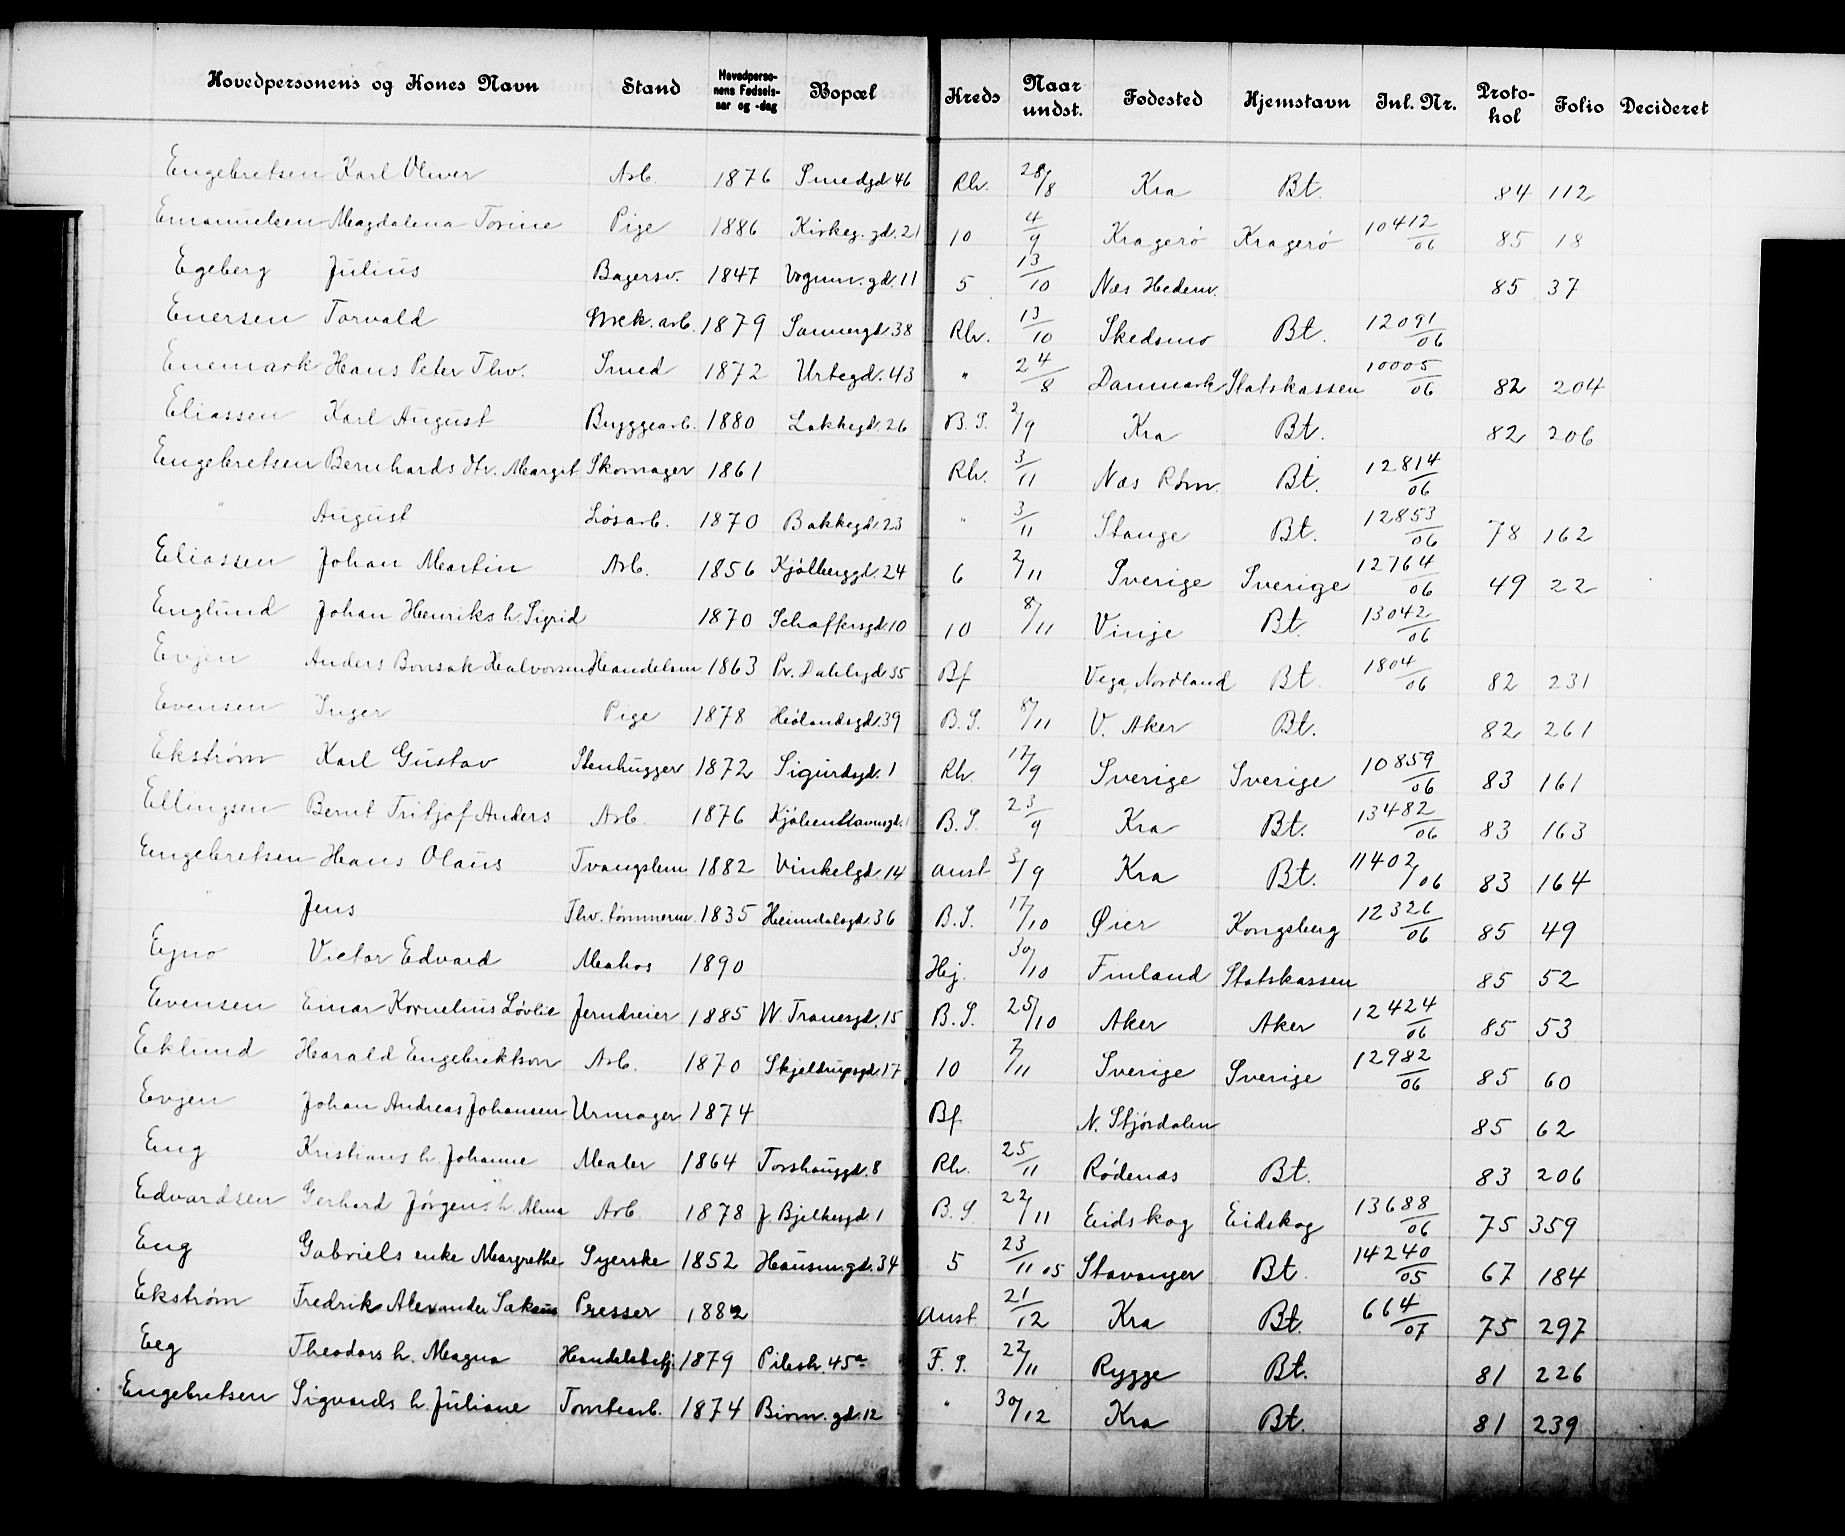 Hovedpersonens og Kones Navn Stand Hovedpersonens Fødselsaar og -dag Bopæl Kreds Naar undst. Fødested Hjemstavn Inl. Nr. Protokol Folio Decideret
Engebretsen Karl Oliver Arb. 1876 Smedgd 46 Rh. 28/8 Kra Bt. 84 112
Emanuelsen Magdalena Torine Pige 1886 Kirkeg. gd. 21 10 4/9 Kragerø Kragerø 10412/06 85 18
Egeberg Julius Bagersv. 1847 Vognm. gd. 11 5 13/10 Næs Hedem. 85 37
Enersen Torvald Mek. arb. 1879 Sannergd 38 Rh. 13/10 Skedsmo Bt. 12091/06
Enemark Hans Peter Thv. Smed 1872 Urtegd. 43 " 24/8 Danmark Statskassen 10005/06 82 204
Eliassen Karl August Byggearb. 1880 Lakkegd. 26 B. S. 2/9 Kra Bt. 82 206
Engebretsen Bernhards dtr. Margit Skomager 1861 Rh. 3/11 Næs Rom. Bt. 12814/06
" August Løsarb. 1870 Bakkegd. 23 " 3/11 Stange Bt. 12853/06 78 162
Eliassen Johan Martin Arb. 1856 Kjølberggd. 24 6 2/11 Sverige Sverige 12764/06 49 22
Englund Johan Henriks h. Sigrid 1870 Schaffersgd. 10 10 8/11 Vinje Bt. 13042/06
Evjen Anders Bonsak Halvorsen Handelsm 1863 Pr. Dahlsgd 35 Bf Vega, Nordland Bt. 1804/06 82 231
Evensen Inger Pige 1878 Heølandsgd. 39 B. S. 8/11 V. Aker Bt. 82 261
Ekstrøm Karl Gustav Stenhugger 1872 Sigurdsgd. 1 Rh. 17/9 Sverige Sverige 10859/06 83 161
Ellingsen Bernt Tritjof Anders Arb. 1876 Kjøbenhavnsgd. 1 B. S. 23/9 Kra Bt. 13482/06 83 163
Engebretsen Hans Olaus Tvangslem 1882 Vinkelgd. 14 Anst 3/9 Kra Bt. 11402/06 83 164
" Jens Fhv. tømmerm. 1835 Heimdalsgd. 36 B. S. 17/10 Øier Kongsberg 12326/06 85 49
Egno Victor Edvard Matros 1890 Hej. 30/10 Finland Statskassen 85 52
Evensen Einar Kornelius Løvlie Jerndreier 1885 W. Tranesgd. 15 B. S. 25/10 Aker Aker 12424/06 85 53
Eklund Harald Engebrektson Arb. 1870 Skjeldrupsgd. 17 10 7/11 Sverige Sverige 12982/06 85 60
Evjen Johan Andreas Johansen Urmager 1874 Bf N. Stjørdalen 85 62
Eng Kristians h. Johanne Maler 1864 Torshauggd. 8 Rh. 25/11 Rødenæs Bt. 83 206
Edvardsen Gerhard Jørgens h. Alma Arb. 1878 J. Bjelkesgd 1 B. S. 22/11 Eidskog Eidskog 13688/06 75 359
Eng Gabriels enke Margrethe Syerske 1852 Hausm. gd. 34 5 23/11 05 Stavanger Bt. 14240/05 67 184
Ekstrøm Fredrik Alexander Presser 1882 Anst 21/12 Kra Bt. 664/07 75 297
Eeg Theodors h. Magna Handelsbetj 1879 Pilestr. 45a F. S. 22/11 Rygge Bt. 81 226
Engebretsen Sigvards h. Juliane Tomtearb. 1874 Birm. gd. 12 " 30/12 Kra Bt. 81 239